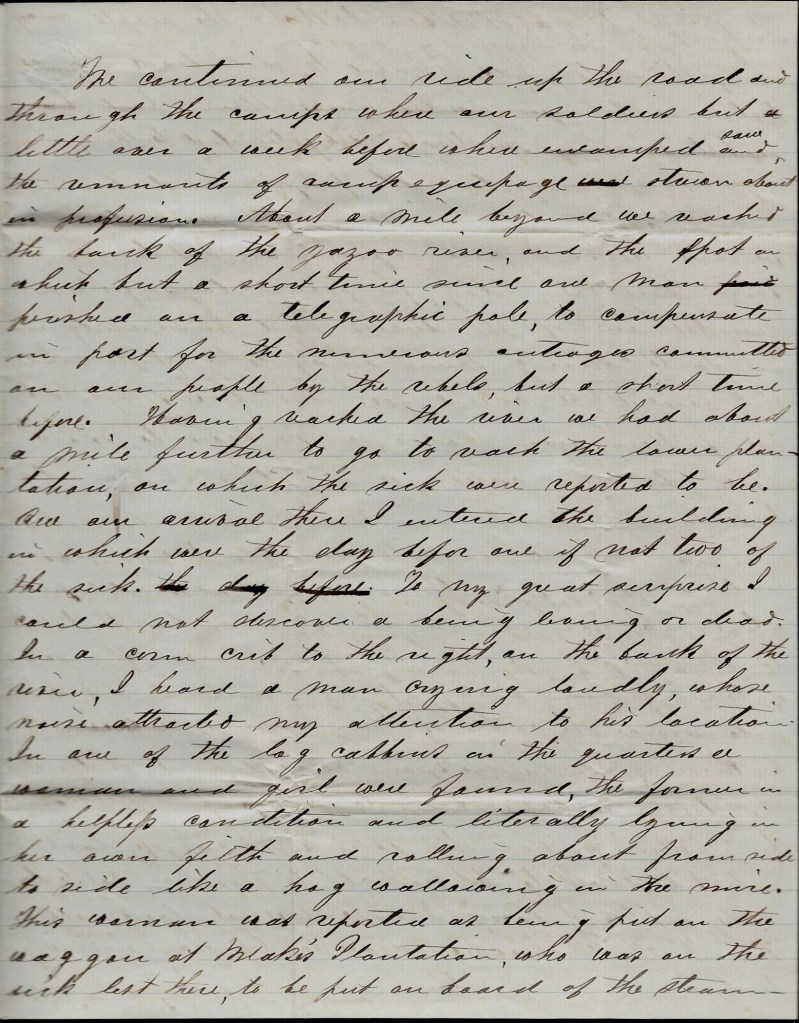 We continued our ride up the road and
through the camps where our soldiers but a
little over a week before where encamped and saw
the remnants of camp equipage strewn about
in profusion. About a mile beyond we reached
the bank of the Yazoo river, and the spot on
which but a short time since one man
perished on a telegraphic pole, to compensate
in part for the numerous outrages committed
on our people by the rebels, but a short time
before. Having reached the river we had about
a mile further to go to reach the lower plan-
tation, on which the sick were reported to be.
On our arrival there I entered the building
in which were the day befor one if not two of
the sick. the day before. To my great surprise I
could not discover a being living or dead.
In a corn crib to the right, on the bank of the
river, I heard a man crying loudly, whose
noise attracted my attention to his location.
In one of the log cabbins in the quarters a
woman and girl were found, the former in
a helpless condition and literally lying in
her own filth and rolling about from side
to side like a hog wallowing in the mire.
This woman was reported as being put on the
waggon at Blake's Plantation, who was on the
sick list there, to be put on board of the steam-